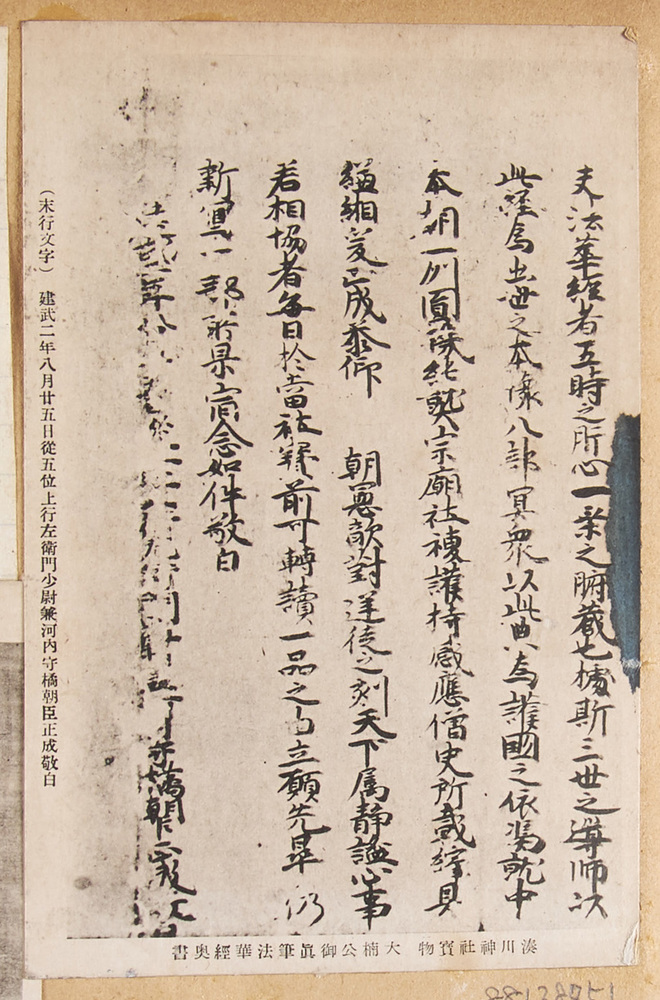 夫法華經者五時之肝心一乘之腑蔵也據斯三世之導師以
此經為出世之本懐八部冥衆以此典為護國之依馮就中
本朝一州圓機純熟宗廟社稷護持感應僧史所載縡具
縑緗爰正成忝仰　朝恩敵對逆徒之刻天下属静謐心事
若相協者毎日於當社寶前可轉讀一品之由立願先畢仍
新寫一部所果宿念如件敬白
（末行文字）　建武二年八月廿五日從五位上行左衞門少尉兼河内守橘朝臣正成敬白
湊川神社寶物　大楠公御眞筆法華經奥書